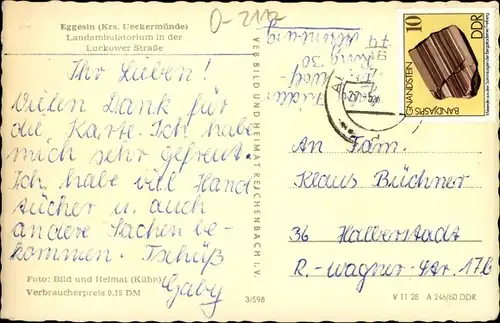 Eggesin (Krs. Ueckermünde)
Landambulatorium in der
Luckower Straße
D-2112
Ihr Lieben!
Vielen Dank für
die Karte. Ich habe
mich sehr gefreut.
Ich habe viel Hand
tücher u. auch
andere Sachen be-
kommen. Tschüß
Gaby
Foto: Bild und Heimat (Kühn)
Verbraucherpreis 0,15 DM
VEB BILD UND HEIMAT REICHENBACH I. V.
3/598
Ring 30
10
DDR
BANDJASPIS
GNANDSTEIN
An Fam.
Klaus Büchner
36 Halberstadt
R.-Wagner-Str. 17b
V 11 28 A 246/60 DDR